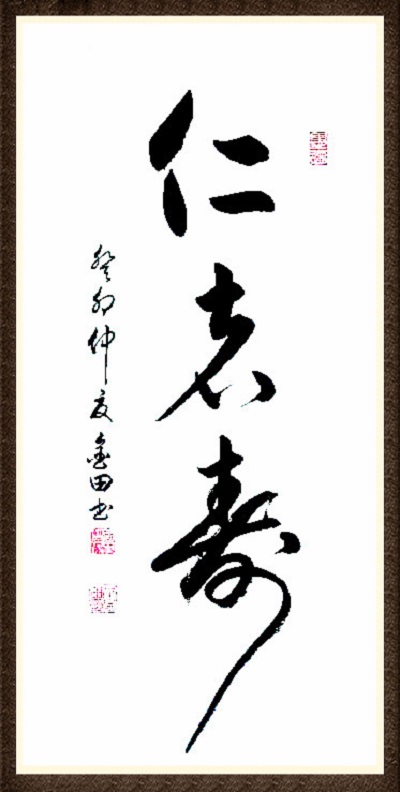 仁者寿
癸卯仲夏金田书